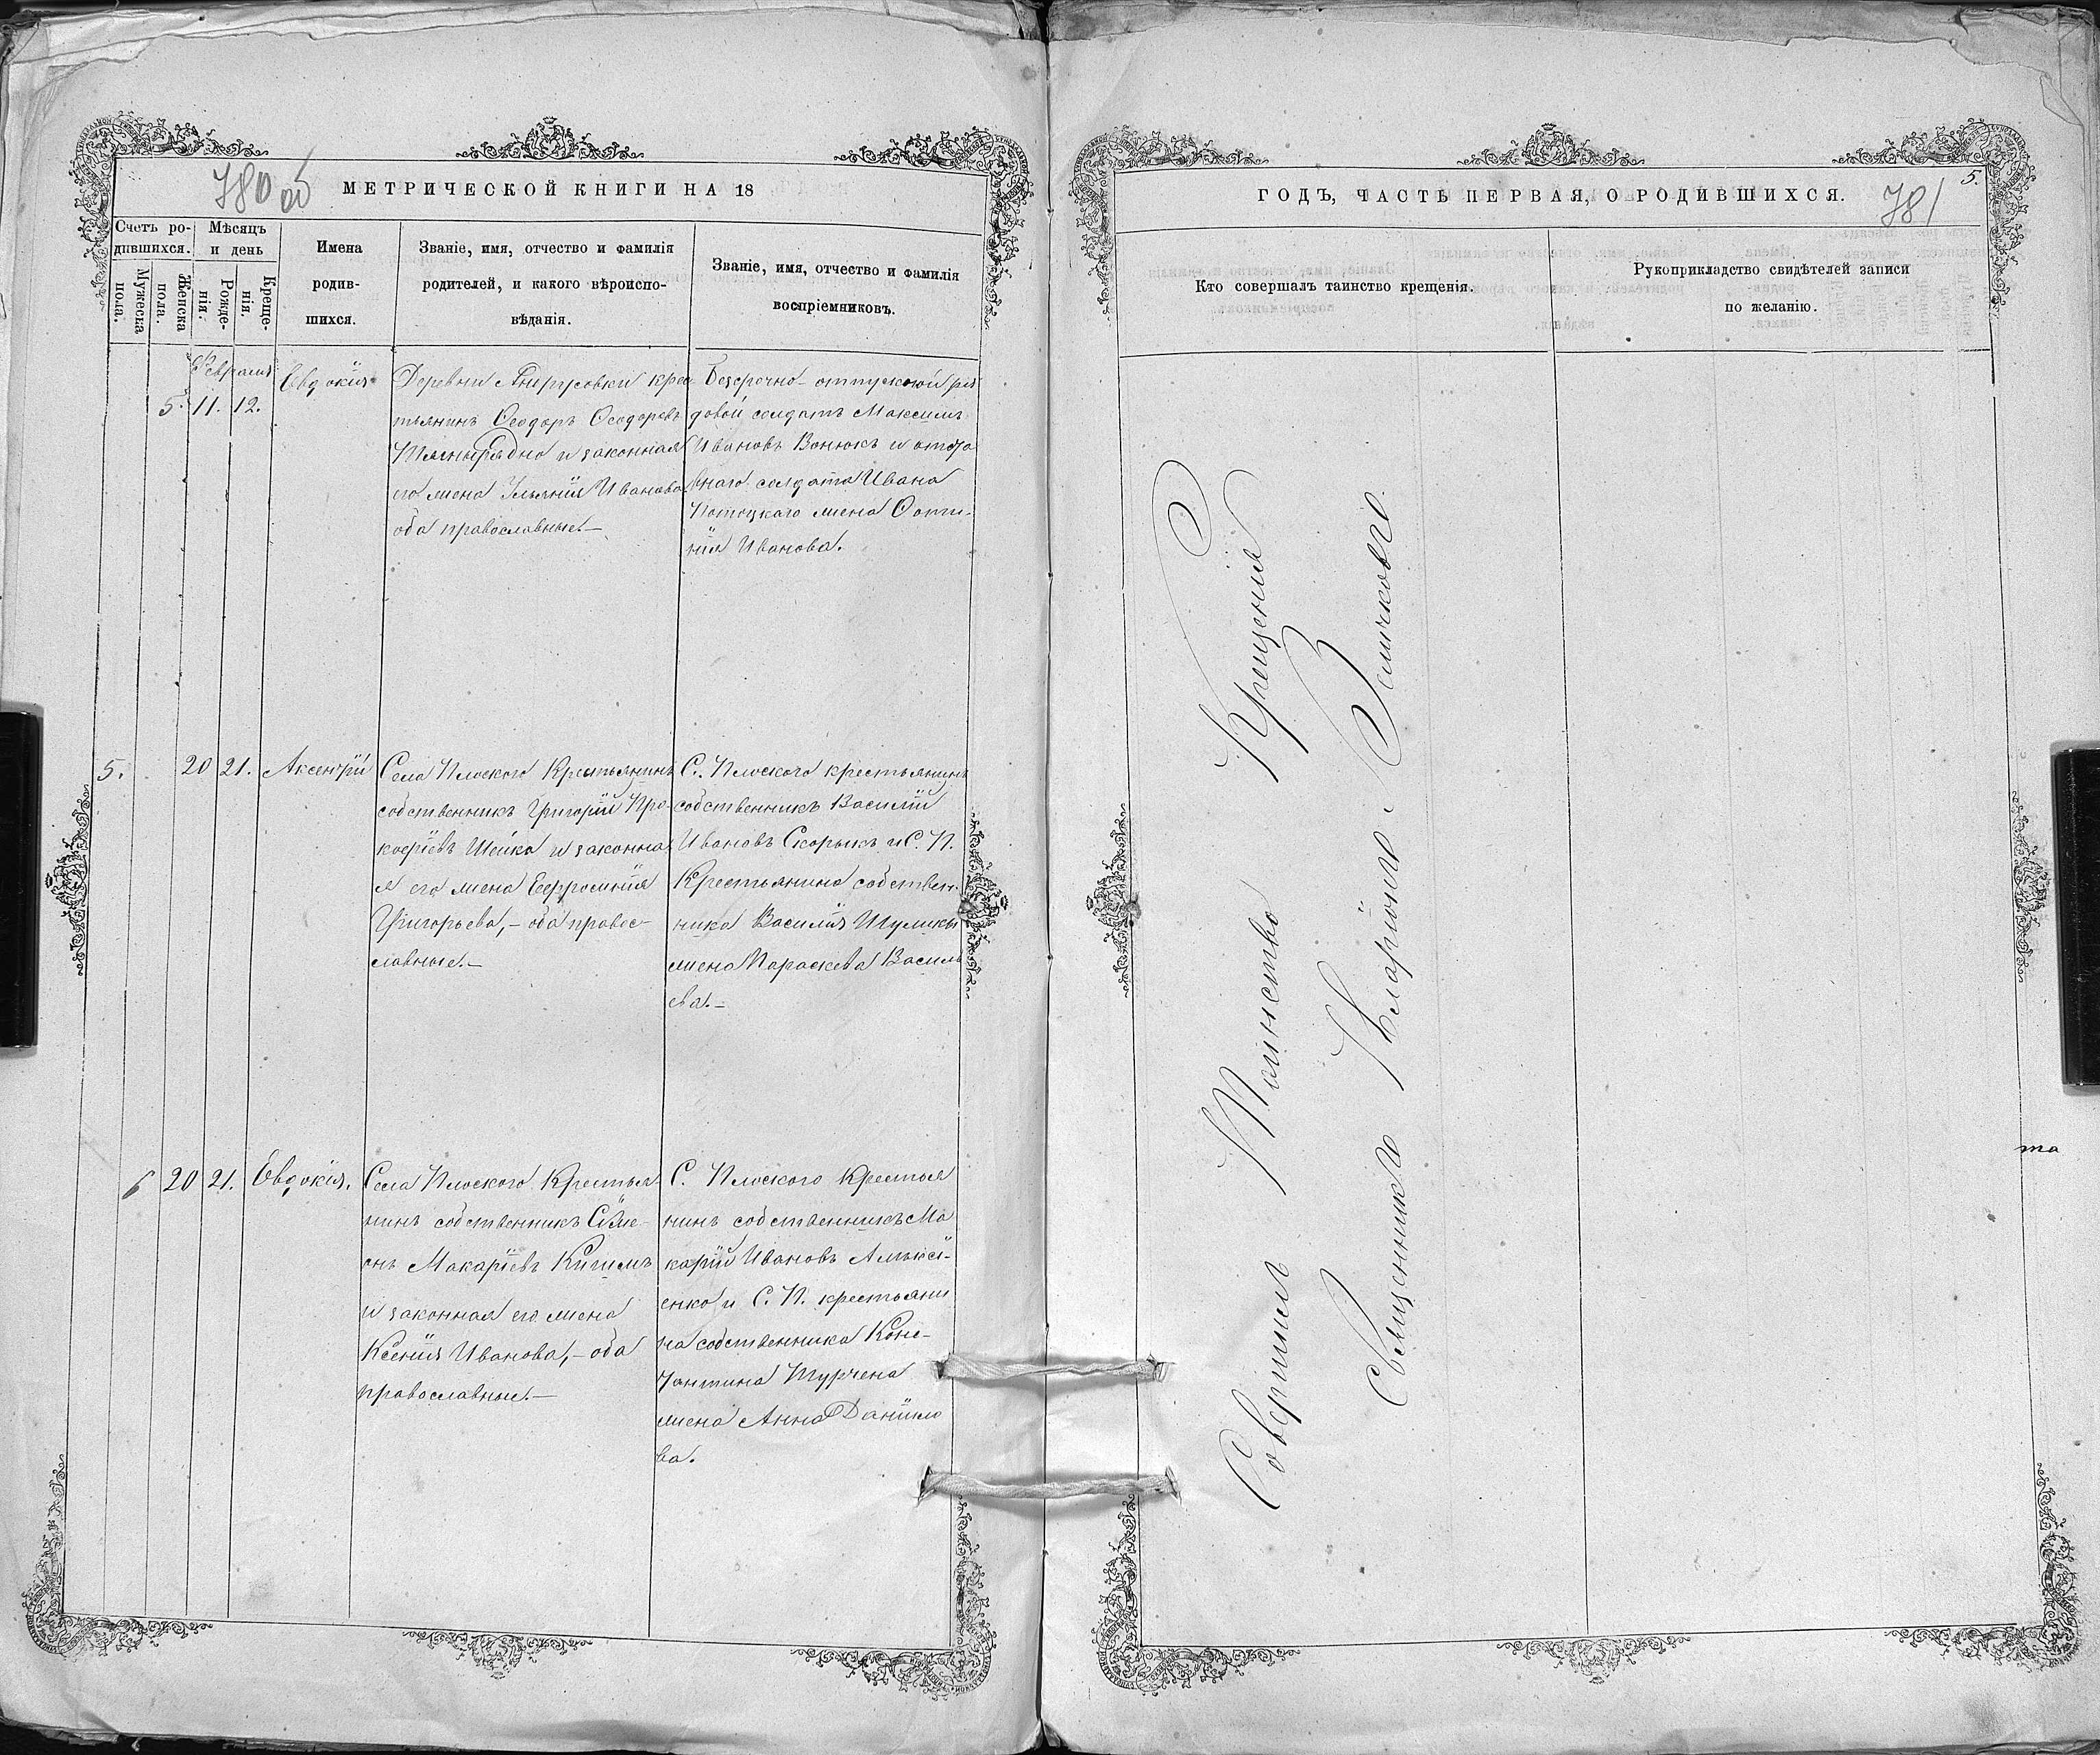 780 об
МЕТРИЧЕСКОЙ КНИГИ НА 18
Счетъ ро-
дившихся.
Мужеска
пола.
Женска
пола.
Мѣсяцъ
и день
Рожде-
нія.
Креще-
нія.
Имена
родив-
шихся.
Званіе, имя, отчество и фамилія
родителей, и какого вѣроиспо-
вѣданія.
Званіе, имя, отчество и фамилія
воспріемниковъ.
Февраля
5. 11. 12.
Евдокія
Деревни крес
тьянинъ Ѳеодоръ Ѳеодоровъ
и законная
его жена Ульянія Иванова
оба православные.—
Безсрочно-отпускной ря
довой солдатъ Максимъ
Ивановъ Вонюкъ и отста
внаго солдата Ивана
Потоцкаго жена Фоти-
нія Иванова.
5. 20 21. Аксентій
Села Плоского Крестьянинъ
собственникъ Григорій Про-
кофіевъ Шейка и законна
я его жена Ефросинія
Григорьева,- оба правос-
лавные.—
С. Плоского крестьянинъ
собственникъ Василій
Ивановъ Скорыкъ и С. П.
Крестьянина собствен-
ника Василія Шулики
жена Параскева Василь
ева.—
6 20 21. Евдокія.
Села Плоского Крестья
нинъ собственникъ Сѵме-
онъ Макаріевъ
и законная его жена
Ксенія Иванова,- оба
православные.—
С. Плоского Крестья
нинъ собственникъ Ма
карій Ивановъ Алексі-
енко и С. П. крестьяни
на собственника Конс-
тантина Турчена
жена Анна Даніило
ва.
5.
ГОДЪ, ЧАСТЬ ПЕРВАЯ, О РОДИВШИХСЯ.
781
Кто совершалъ таинство крещенія.
Рукоприкладство свидѣтелей записи
по желанію.
Совершил Таинство Крещения
Священникъ Иларіонъ
та